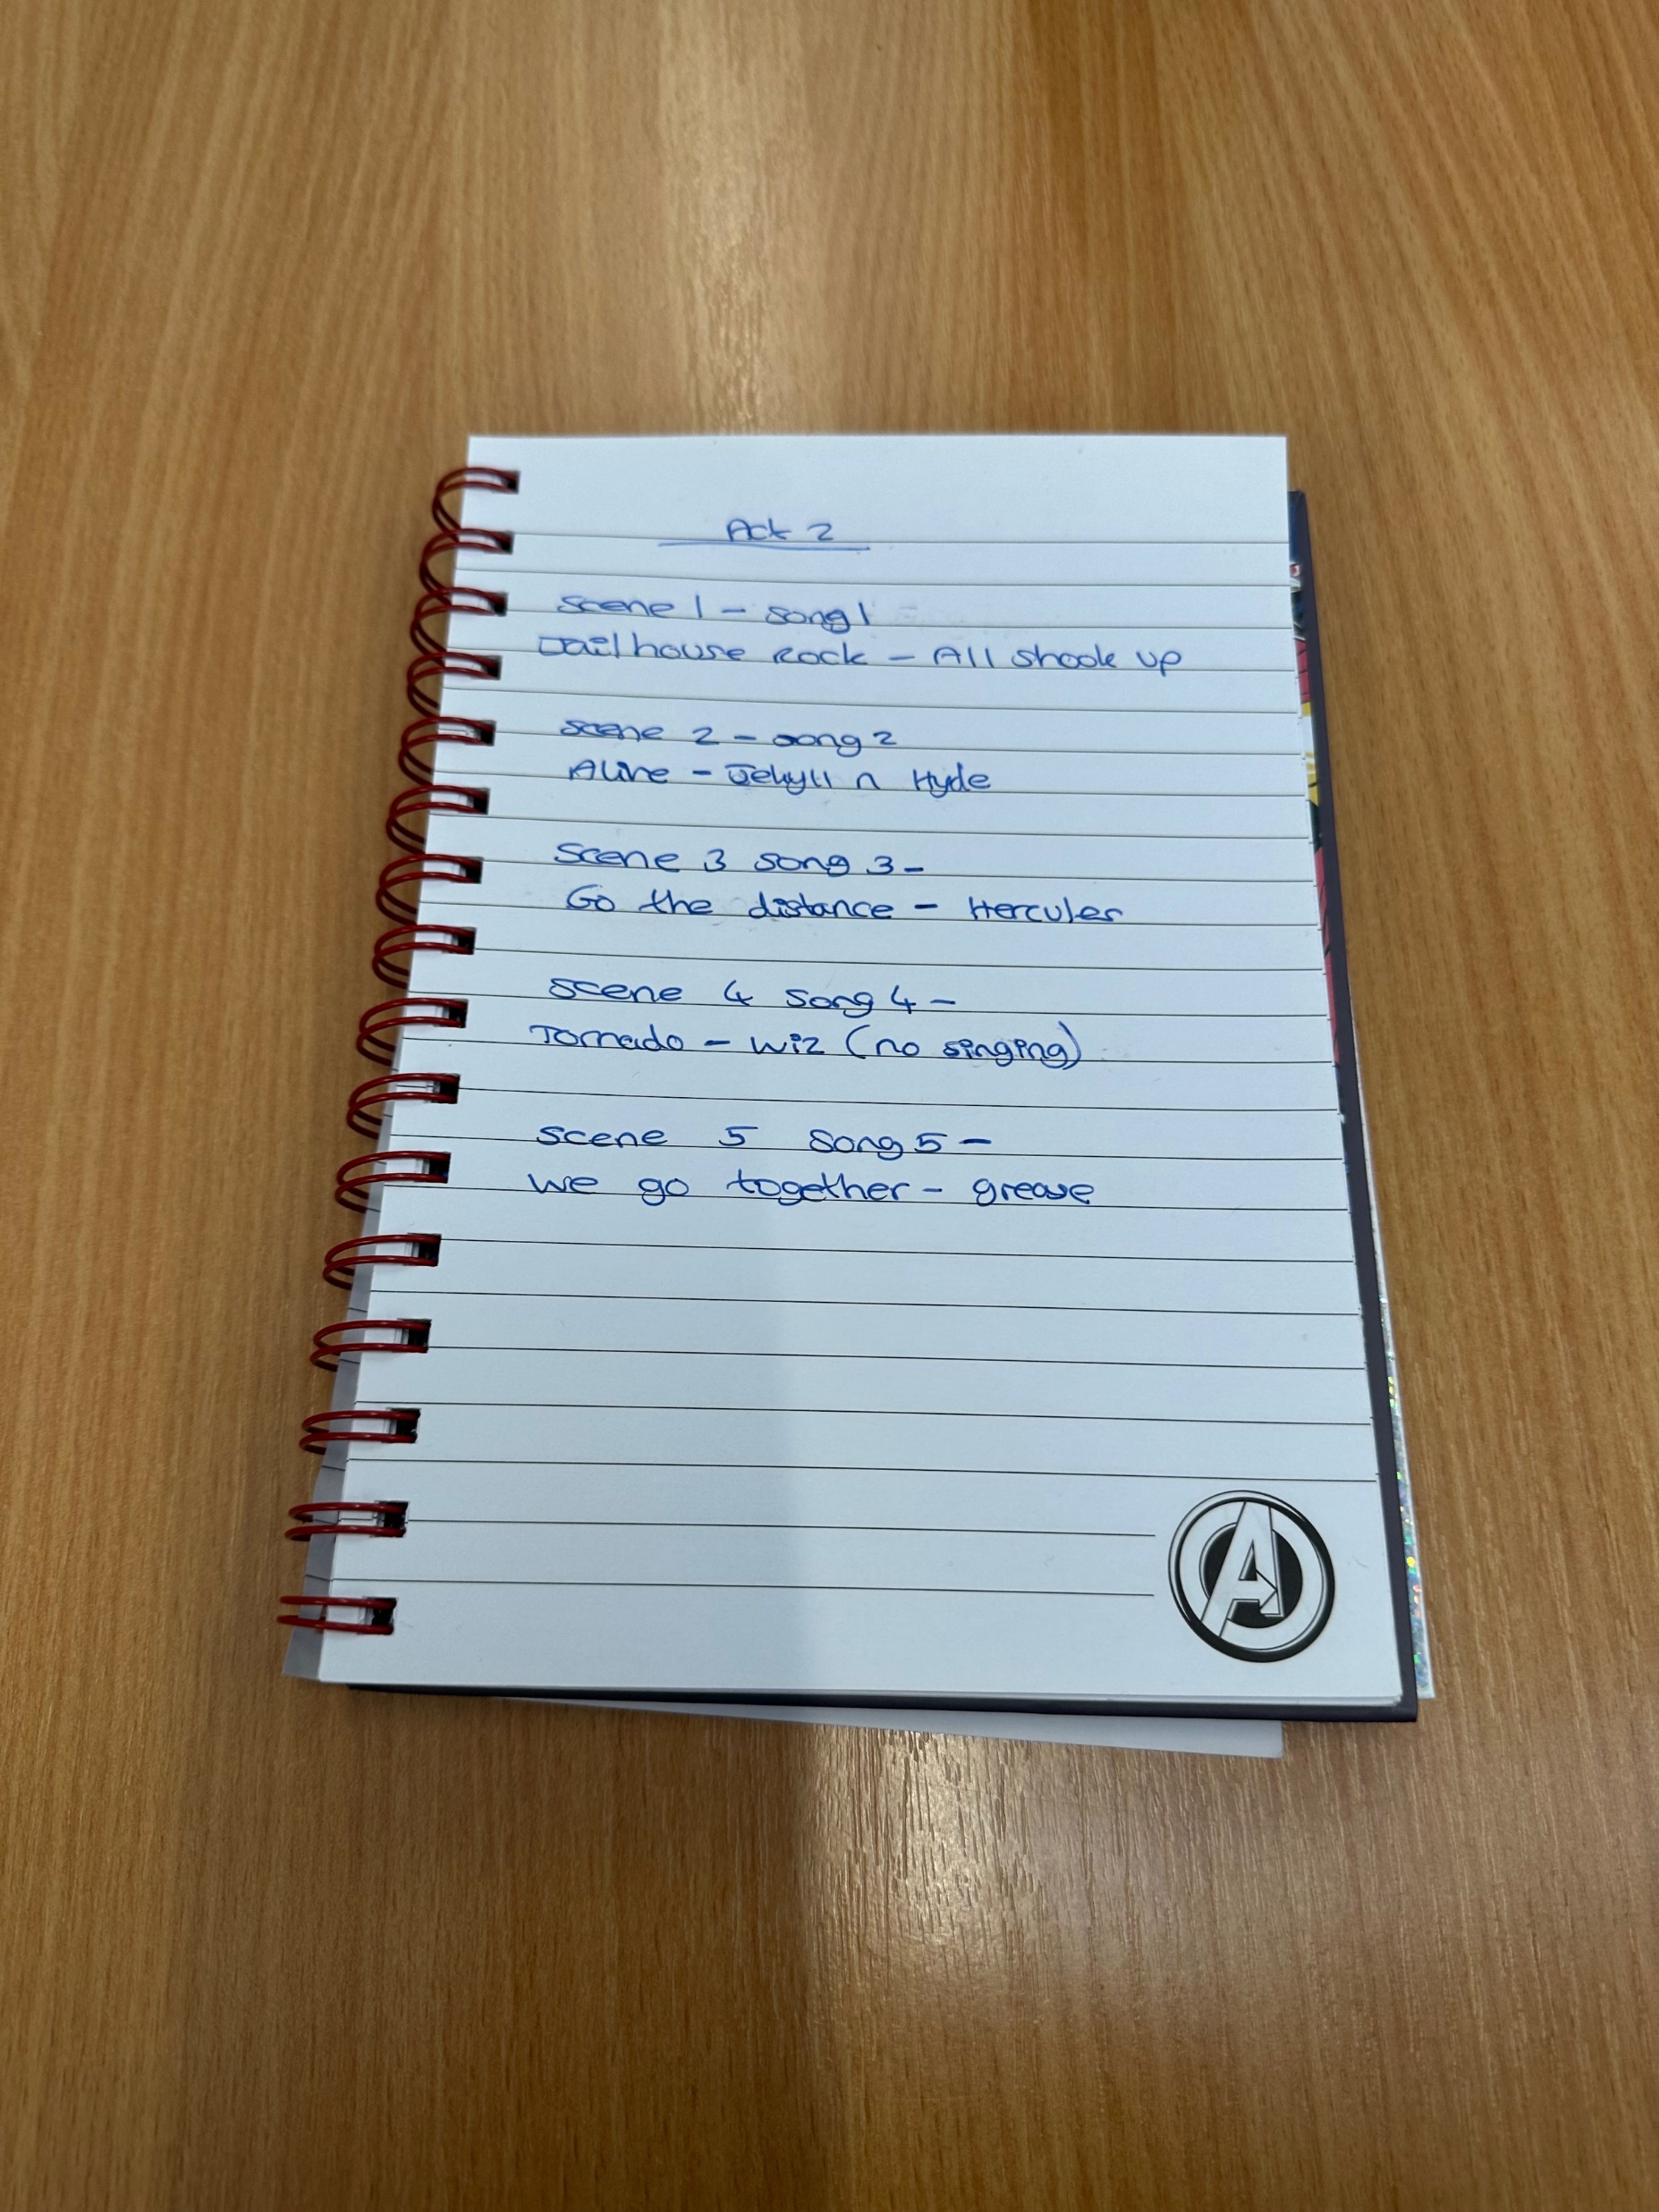 Act 2
Scene 1 - Song 1
Jailhouse Rock - All shook up
Scene 2 - Song 2
Alive - Jekyll n Hyde
Scene 3 Song 3 -
Go the distance - Hercules
Scene 4 Song 4 -
Tornado - Wiz (no singing)
Scene 5 Song 5 -
We go together - grease
A